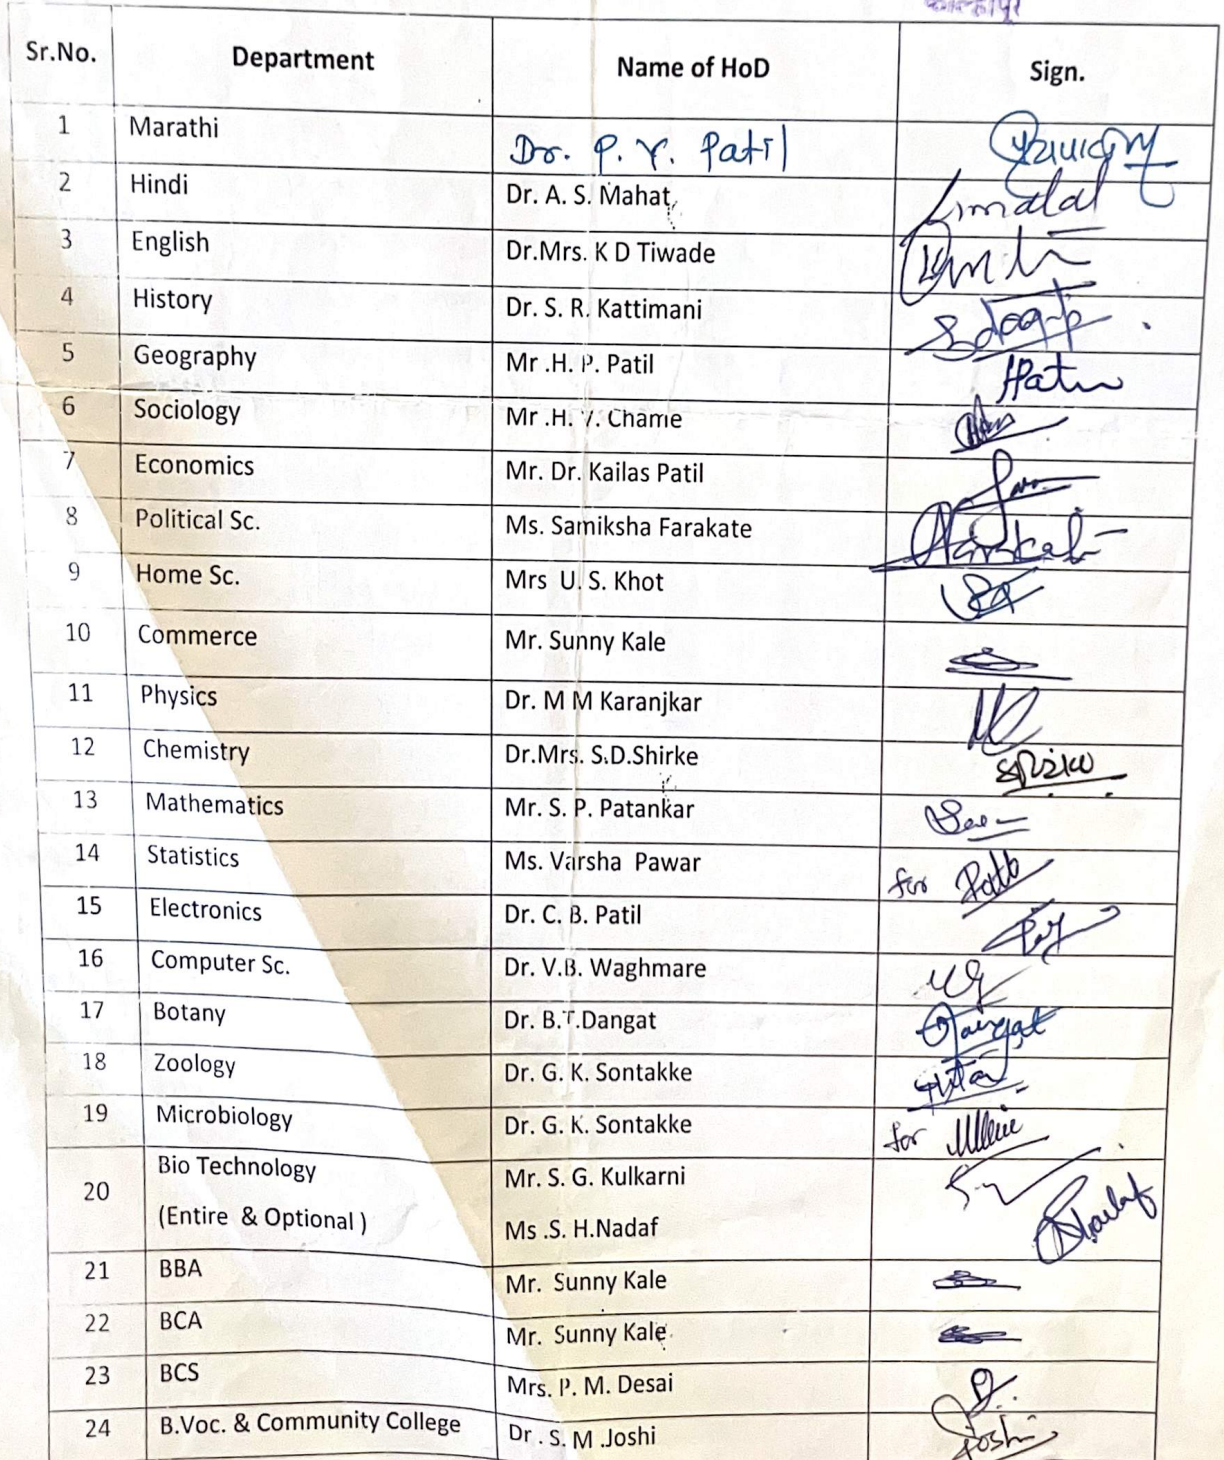 कोल्हापूर
Sr.No. Department Name of HoD Sign.
1 Marathi Dr. P. Y. Patil
2 Hindi Dr. A. S. Mahat
3 English Dr.Mrs. K D Tiwade
4 History Dr. S. R. Kattimani
5 Geography Mr .H. P. Patil
6 Sociology Mr .H. Y. Chame
7 Economics Mr. Dr. Kailas Patil
8 Political Sc. Ms. Samiksha Farakate
9 Home Sc. Mrs U. S. Khot
10 Commerce Mr. Sunny Kale
11 Physics Dr. M M Karanjkar
12 Chemistry Dr.Mrs. S.D.Shirke
13 Mathematics Mr. S. P. Patankar
14 Statistics Ms. Varsha Pawar for
15 Electronics Dr. C. B. Patil
16 Computer Sc. Dr. V.B. Waghmare
17 Botany Dr. B.T.Dangat Dangat
18 Zoology Dr. G. K. Sontakke
19 Microbiology Dr. G. K. Sontakke for
20 Bio Technology Mr. S. G. Kulkarni
(Entire & Optional ) Ms .S. H.Nadaf
21 BBA Mr. Sunny Kale
22 BCA Mr. Sunny Kale
23 BCS Mrs. P. M. Desai
24 B.Voc. & Community College Dr . S. M .Joshi Joshi